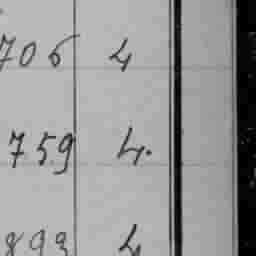 706 4
759 4.
893 4